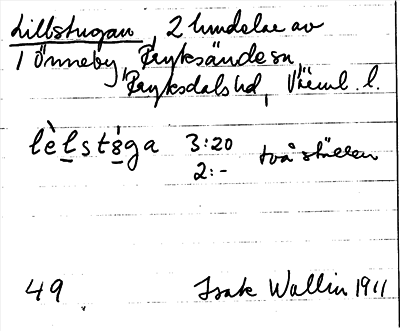 Lillstugan, 2 lindelar av
1 Önneby, Fryksände sn,
Fryksdals hd, Värml. l.
lèlsts̀ga 3:20 två ställen
2:-
49 Isak Wallin 1911